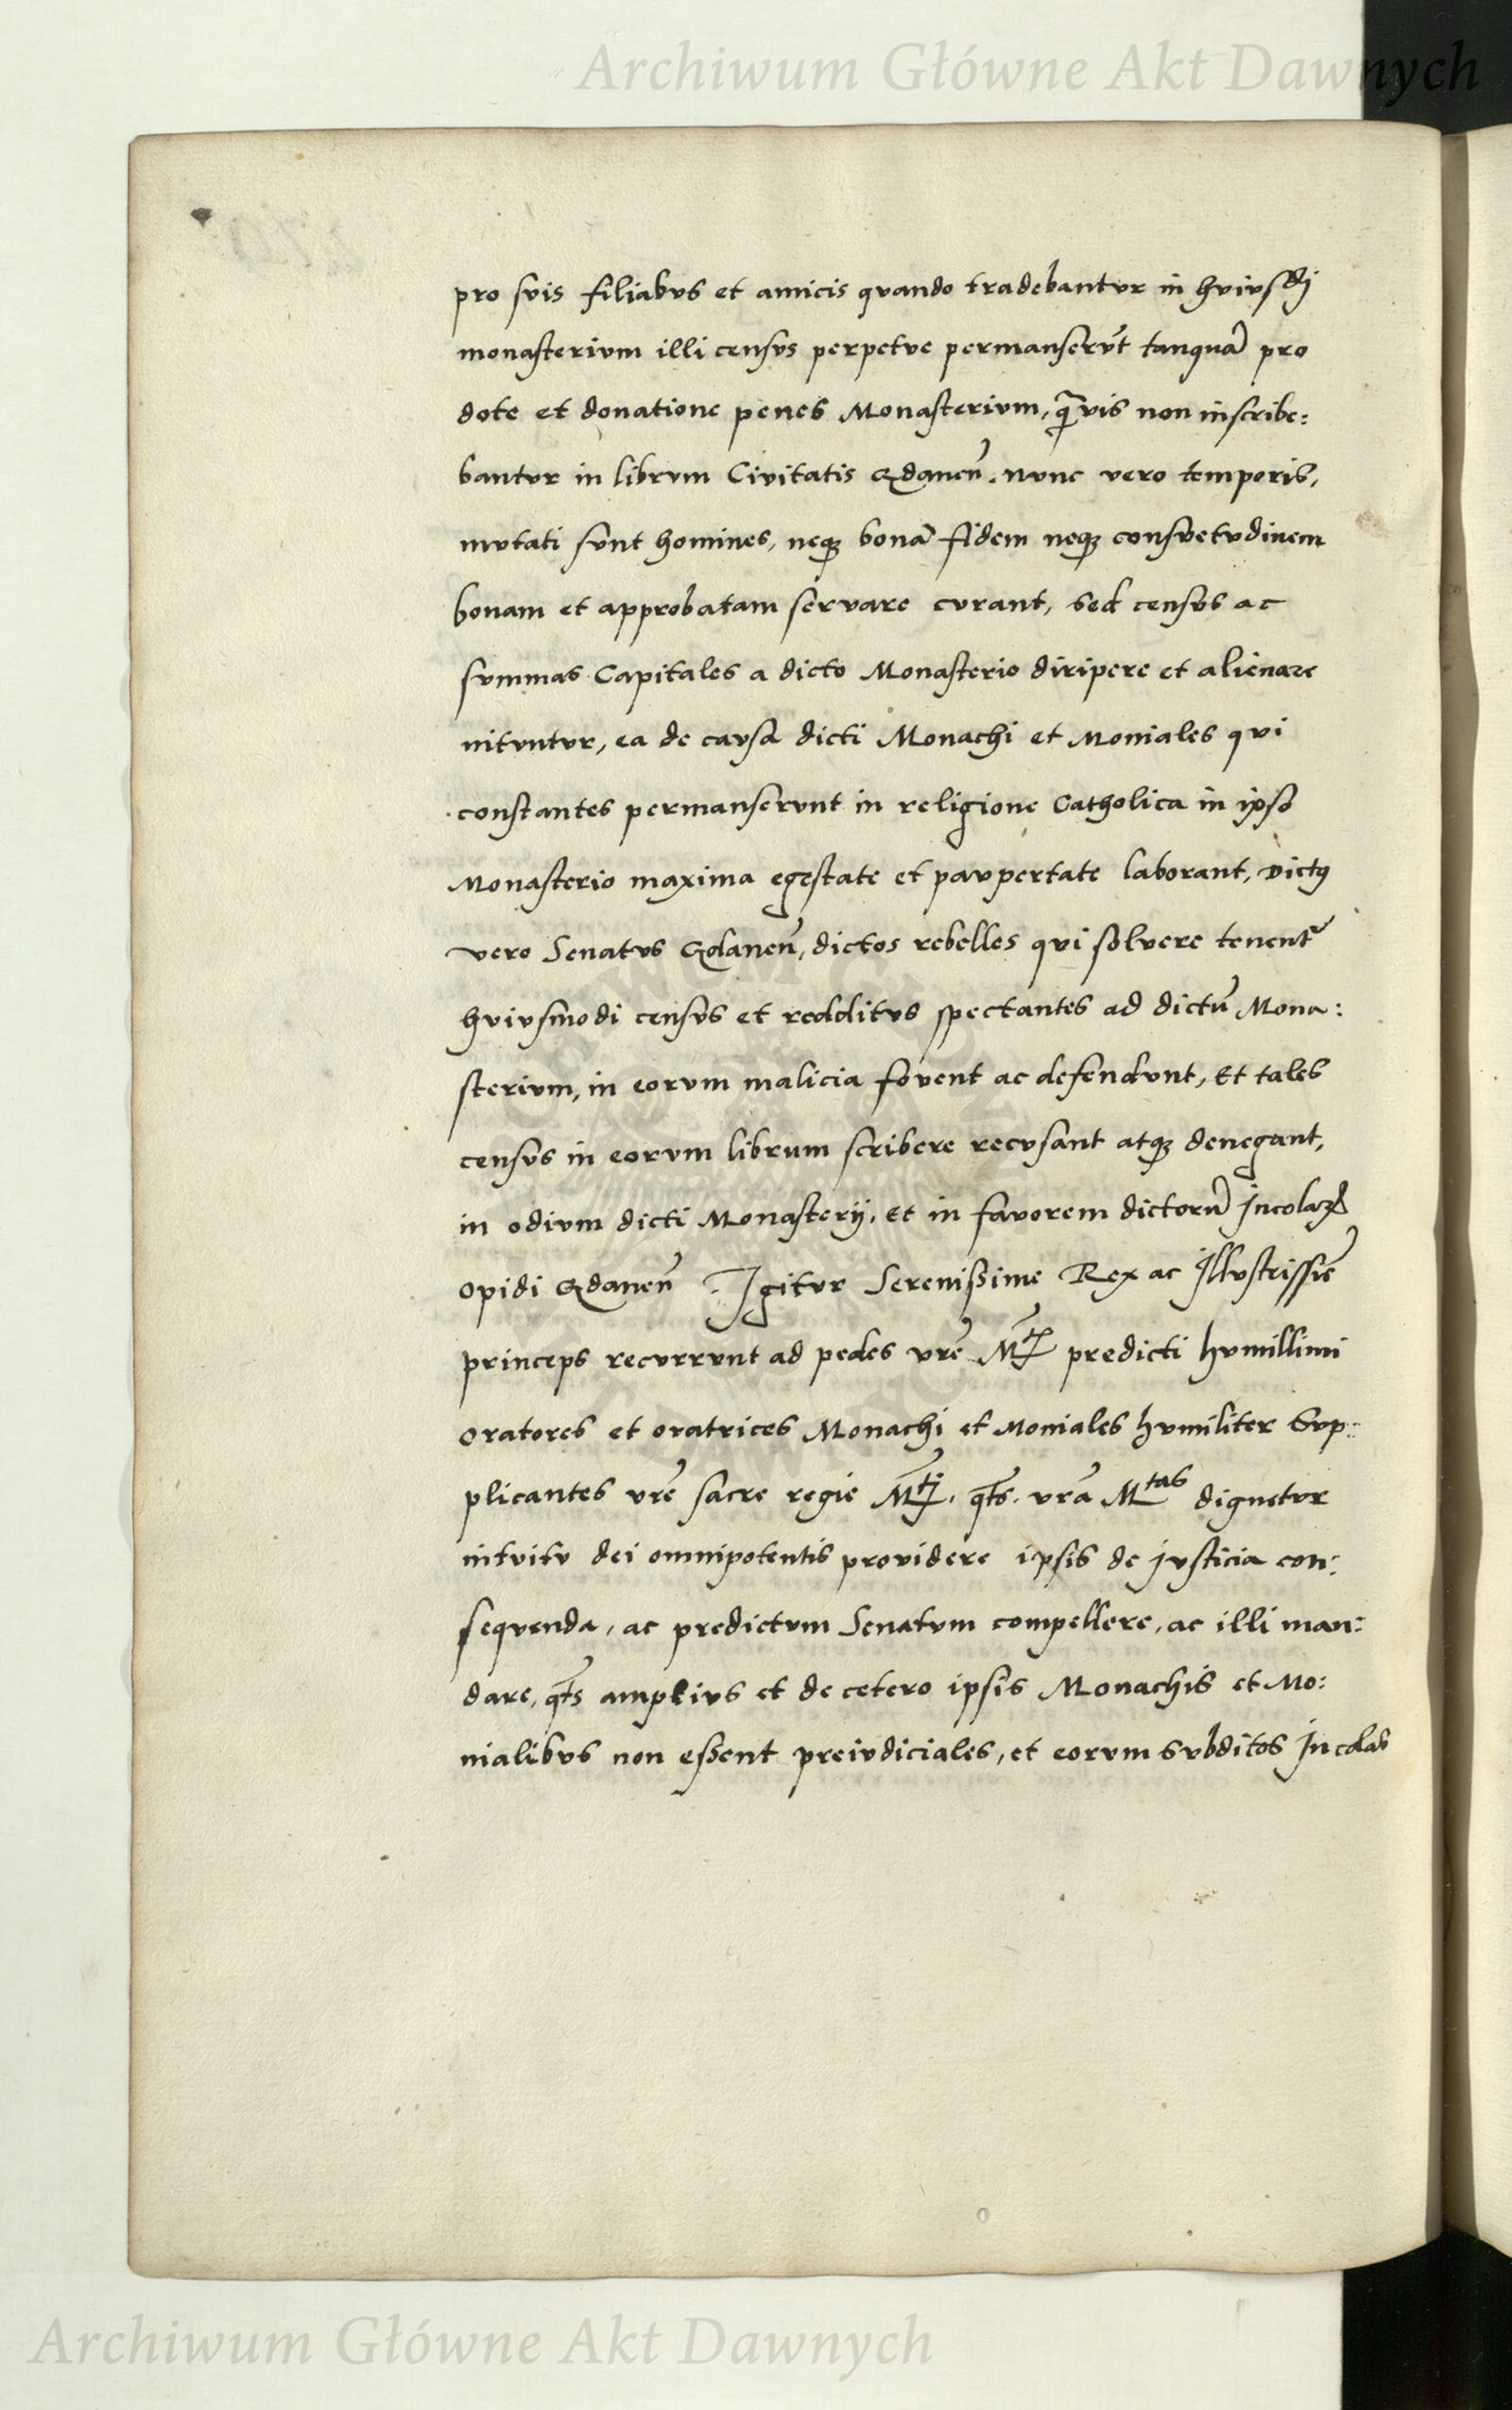 Archiwum Główne Akt Dawnych
pro suis filiabus et amicis quando tradebantur in huiusdj
monasterium illi census perpetue permanserūt tanquā pro
dote et donatione penes Monasterium, q̄uis non inscribe:
bantur in librum Ciuitatis Gdaneñ. nunc vero temporis,
mutati sunt homines, neqȝ bonā fidem neqȝ consuetudinem
bonam et approbatam seruare curant, sed census ac
summas Capitales a dicto Monasterio diripere et alienare
nituntur, ea de causa dicti Monachi et Moniales qui
constantes permanserunt in religione Catholica in ipso
Monasterio maxima egestate et paupertate laborant, dictꝰ
vero Senatus Gdaneñ, dictos rebelles qui soluere tenentr
huiusmodi census et redditus spectantes ad dictū Mona:
sterium, in eorum malicia fouent ac defendunt, Et tales
census in eorum librum scribere recusant atqȝ denegant,
in odium dicti Monasterij, et in fauorem dictorū Jncolaꝝ
opidi Gdaneñ. Igitur Sereniſsime Rex ac Jllustrissīe
princeps recurrunt ad pedes vrē Mtis predicti humillimi
oratores et oratrices Monachi et Moniales humiliter Sup:
plicantes vrē sacre regie Mtj, qt̄s. vrā Mtas dignetur
intuitu dei omnipotentis prouidere ipsis de justicia con:
sequenda, ac predictum Senatum compellere, ac illi man:
dare, qt̄s amplius et de cetero ipsis Monachis et Mo:
nialibus non eſsent preiudiciales, et eorum subditos Jncolas
Archiwum Główne Akt Dawnych